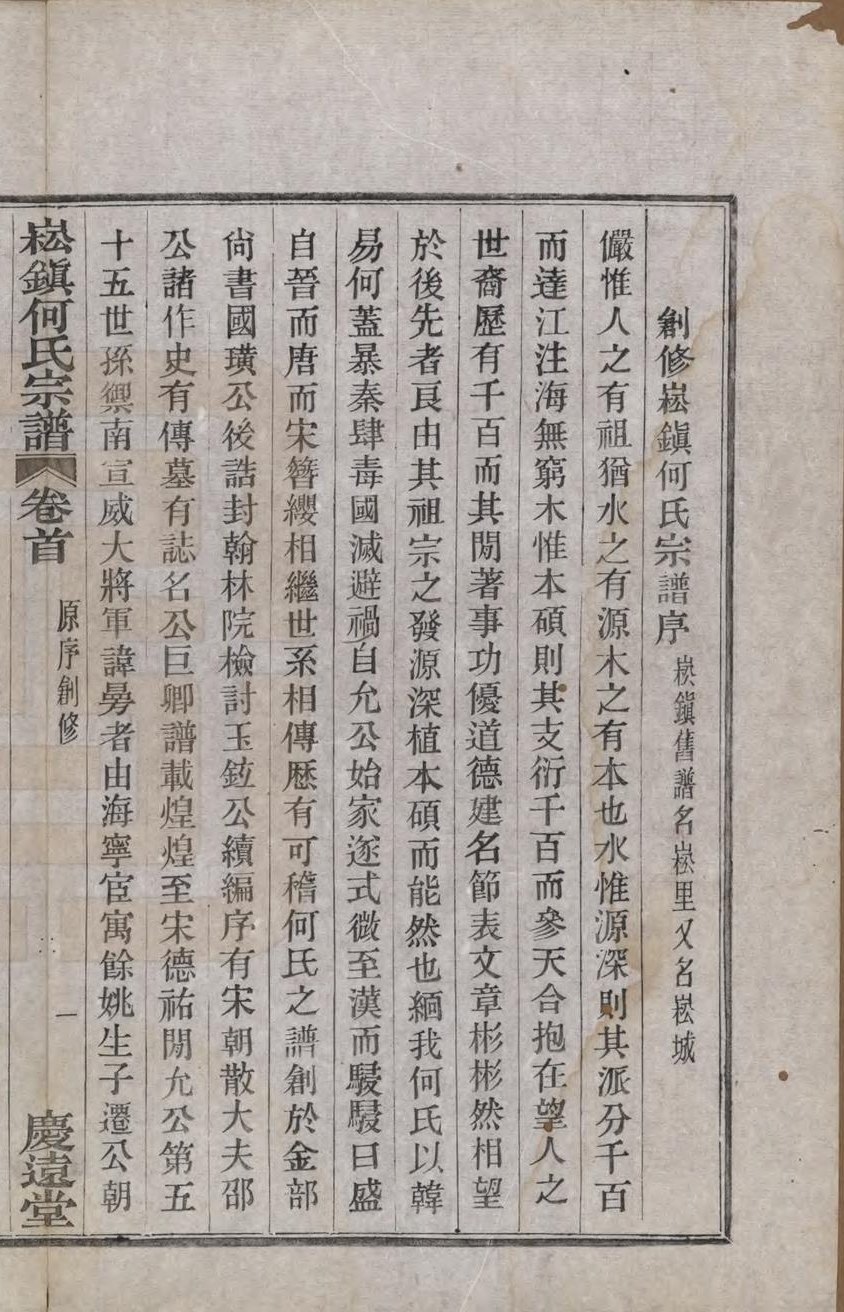 創修崧鎭何氏宗譜序 崧鎭舊譜名崧里又名崧城
儼惟人之有祖猶水之有源木之有本也水惟源深則其派分千百
而達江注海無窮木惟本碩則其支衍千百而參天合抱在望人之
世裔歷有千百而其閒著事功優道德建名節表文章彬彬然相望
於後先者良由其祖宗之發源深植本碩而能然也緬我何氏以韓
易何蓋暴秦肆毒國滅避禍自允公始家遂式微至漢而駸駸日盛
自晉而唐而宋簪纓相繼世系相傳歷有可稽何氏之譜創於金部
尙書國璜公後誥封翰林院檢討玉鉝公續編序有宋朝散大夫邵
公諸作史有傳墓有誌名公巨卿譜載煌煌至宋德祐閒允公第五
十五世孫禦南宣威大將軍諱昮者由海寧宦寓餘姚生子遷公朝
崧鎭何氏宗譜 卷首 原序創修 一 慶遠堂